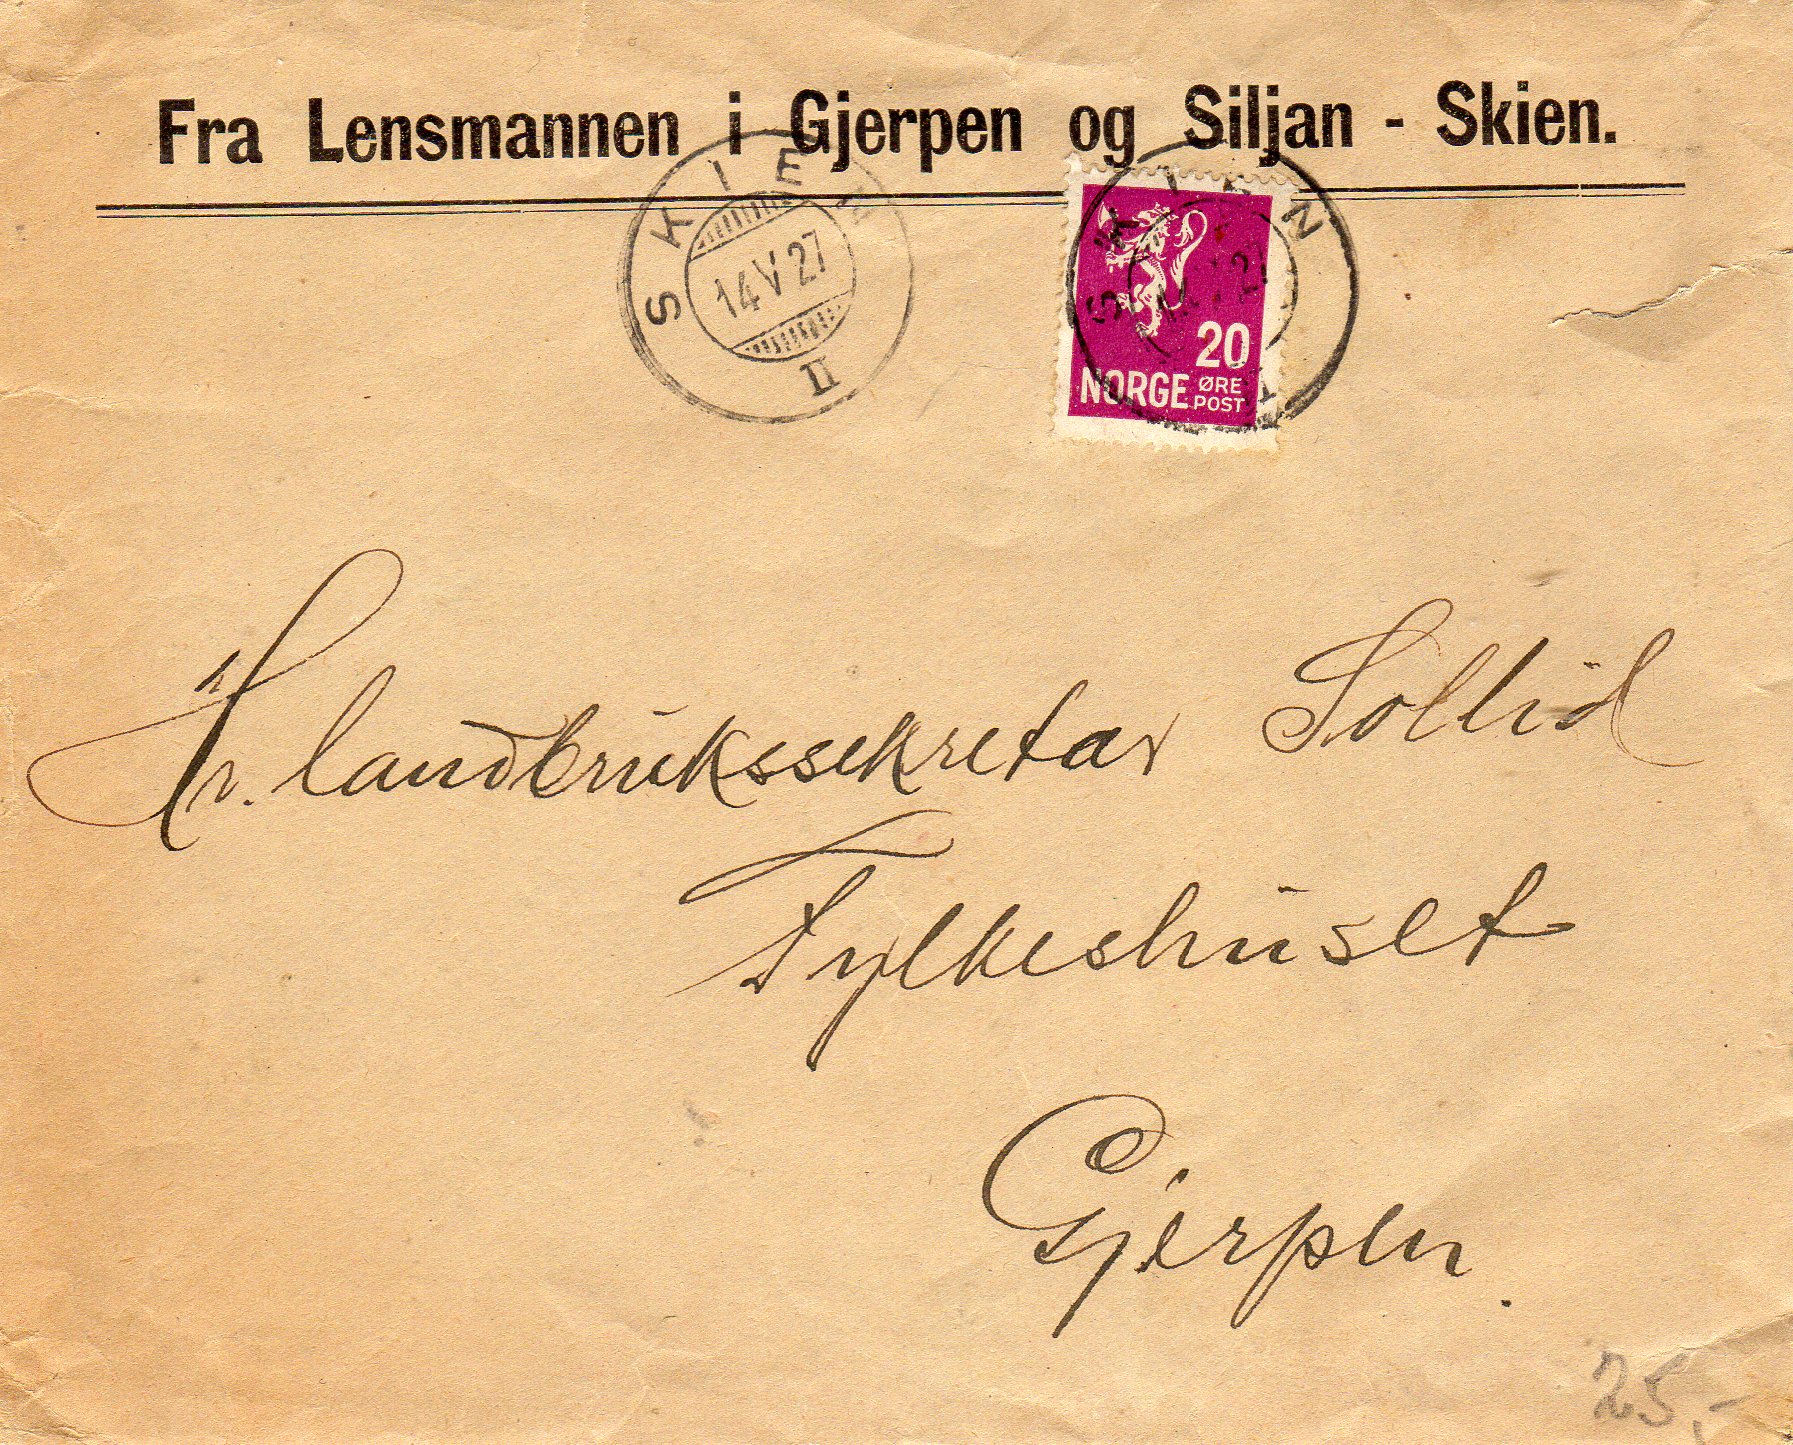 Fra Lensmannen i Gjerpen og Siljan - Skien.
SKIEN
14 V 27
II
SKIEN
20
NORGE ØRE
POST
Hr. landbrukssekretær Sollid
Fylkeshuset
Gjerpen.
25,-